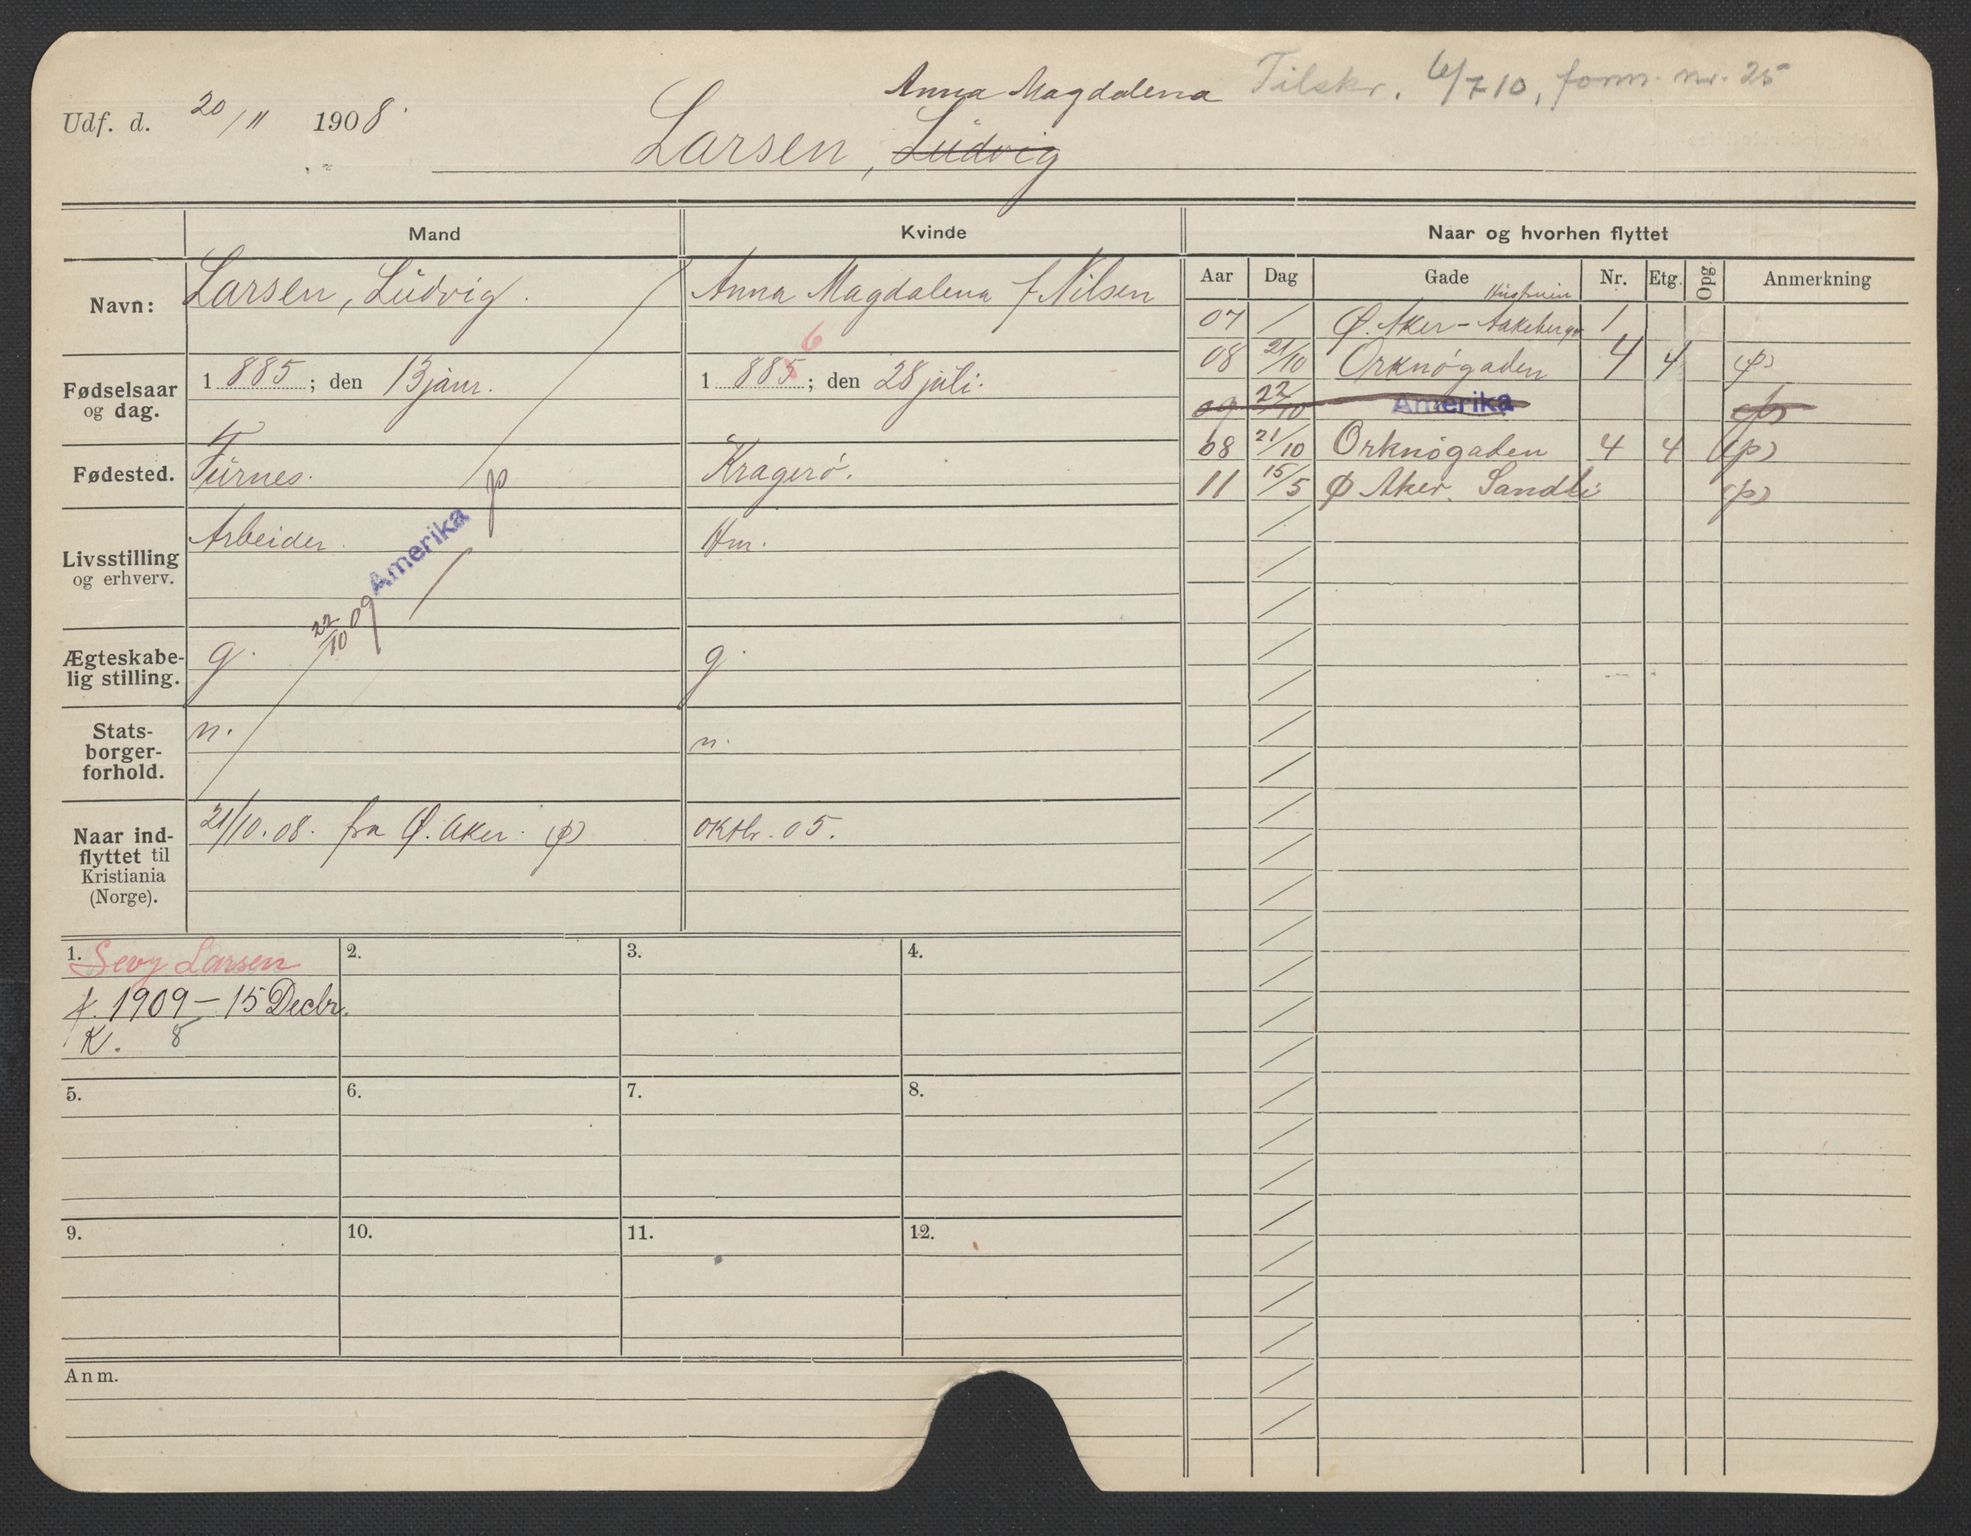 Anna Magdalena Tilskr. 6/7 10, form. nr. 25
Udf. d. 20/11 1908.
Larsen, Ludvig
Mand Kvinde Naar og hvorhen flyttet
Navn: Larsen, Ludvig. Anna Magdalena f Nilsen
Fødselsaar og dag. 1 885 ; den 13 janr. 1 885 6 ; den 28 juli.
Fødested. Furnes. Kragerø.
Livsstilling og erhverv. Arbeider. Hm.
22/10 09 Amerika p
Ægteskabelig stilling. g. g.
Statsborgerforhold. n. n.
Naar indflyttet til Kristiania (Norge). 21/10.08. fra Ø. Aker. (p) oktbr. 05.
Aar Dag Gade Nr. Etg. Opg. Anmerkning
Hustruen
07 / Ø. Aker - Aakebergv 1
08 21/10 Orknøgaden 4 4 (p)
09 22/10 Amerika (p)
08 21/10 Orknøgaden 4 4 (p)
11 15/5 Ø Aker. Sandli (p)
1. Sevy Larsen 2. 3. 4.
f. 1909 - 15 Decbr.
K. 8
5. 6. 7. 8.
9. 10. 11. 12.
Anm.